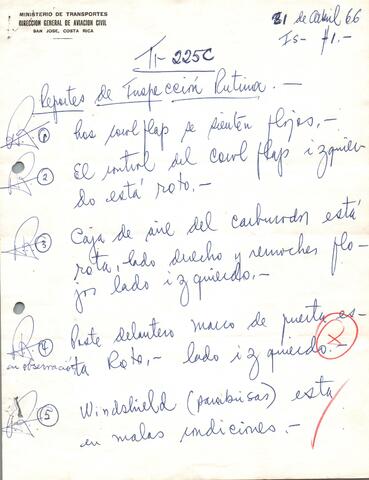 MINISTERIO DE TRANSPORTES
DIRECCION GENERAL DE AVIACION CIVIL
SAN JOSE, COSTA RICA
21 de abril 66
Is- #1.-
TI-225C
Reportes de Inspección Rutina.-
1 Los cowl flap se sienten flojos,-
2 El control del cowl flap izquier-
do está roto.-
3 Caja de aire del carburador está
rota, lado derecho y remaches flo-
jos lado izquierdo,-
4 Poste delantero marco de puerta es-
en observación ta Roto,- lado izquierdo.-
5 Windshield (parabrisas) esta
en malas condiciones.-